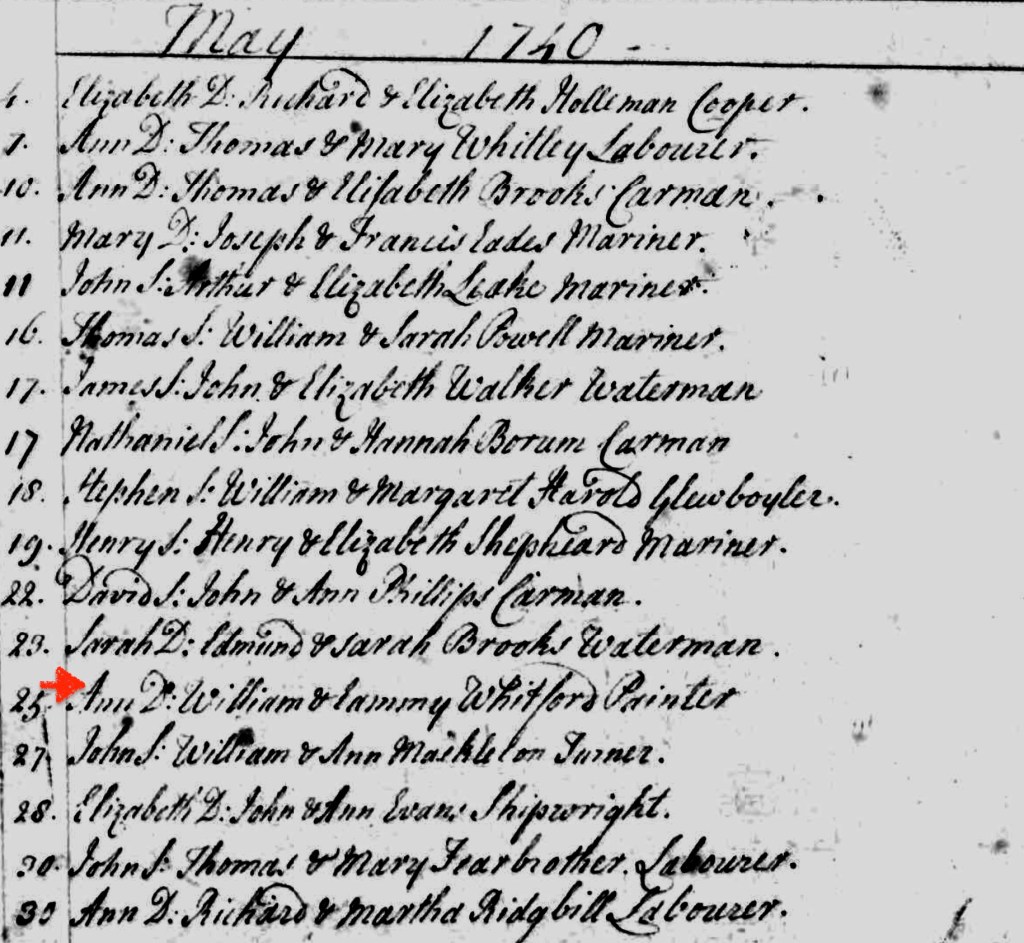 May 1740 -
4. Elizabeth D: Richard & Elizabeth Holleman Cooper.
7. Ann D: Thomas & Mary Whitley Labourer.
10. Ann D: Thomas & Elisabeth Brooks Carman.
11. Mary D: Joseph & Francis Eades Mariner.
11 John S: Arthur & Elizabeth Leake Mariner.
16. Thomas S: William & Sarah Powell Mariner.
17. James S: John & Elizabeth Walker Waterman
17 Nathaniel S: John & Hannah Borum Carman
18. Stephen S: William & Margaret Harold Glewboyler.
19. Henry S: Henry & Elizabeth Shepheard Mariner.
22. David S: John & Ann Phillips Carman.
23. Sarah D: Edmund & Sarah Brooks Waterman.
25. Ann D: William & Whitford Painter
27 John S: William & Ann Turner.
28. Elizabeth D: John & Ann Evans Shipwright.
30. John S: Thomas & Mary Fearbrother. Labourer.
30 Ann D: Richard & Martha Ridgbill Labourer.